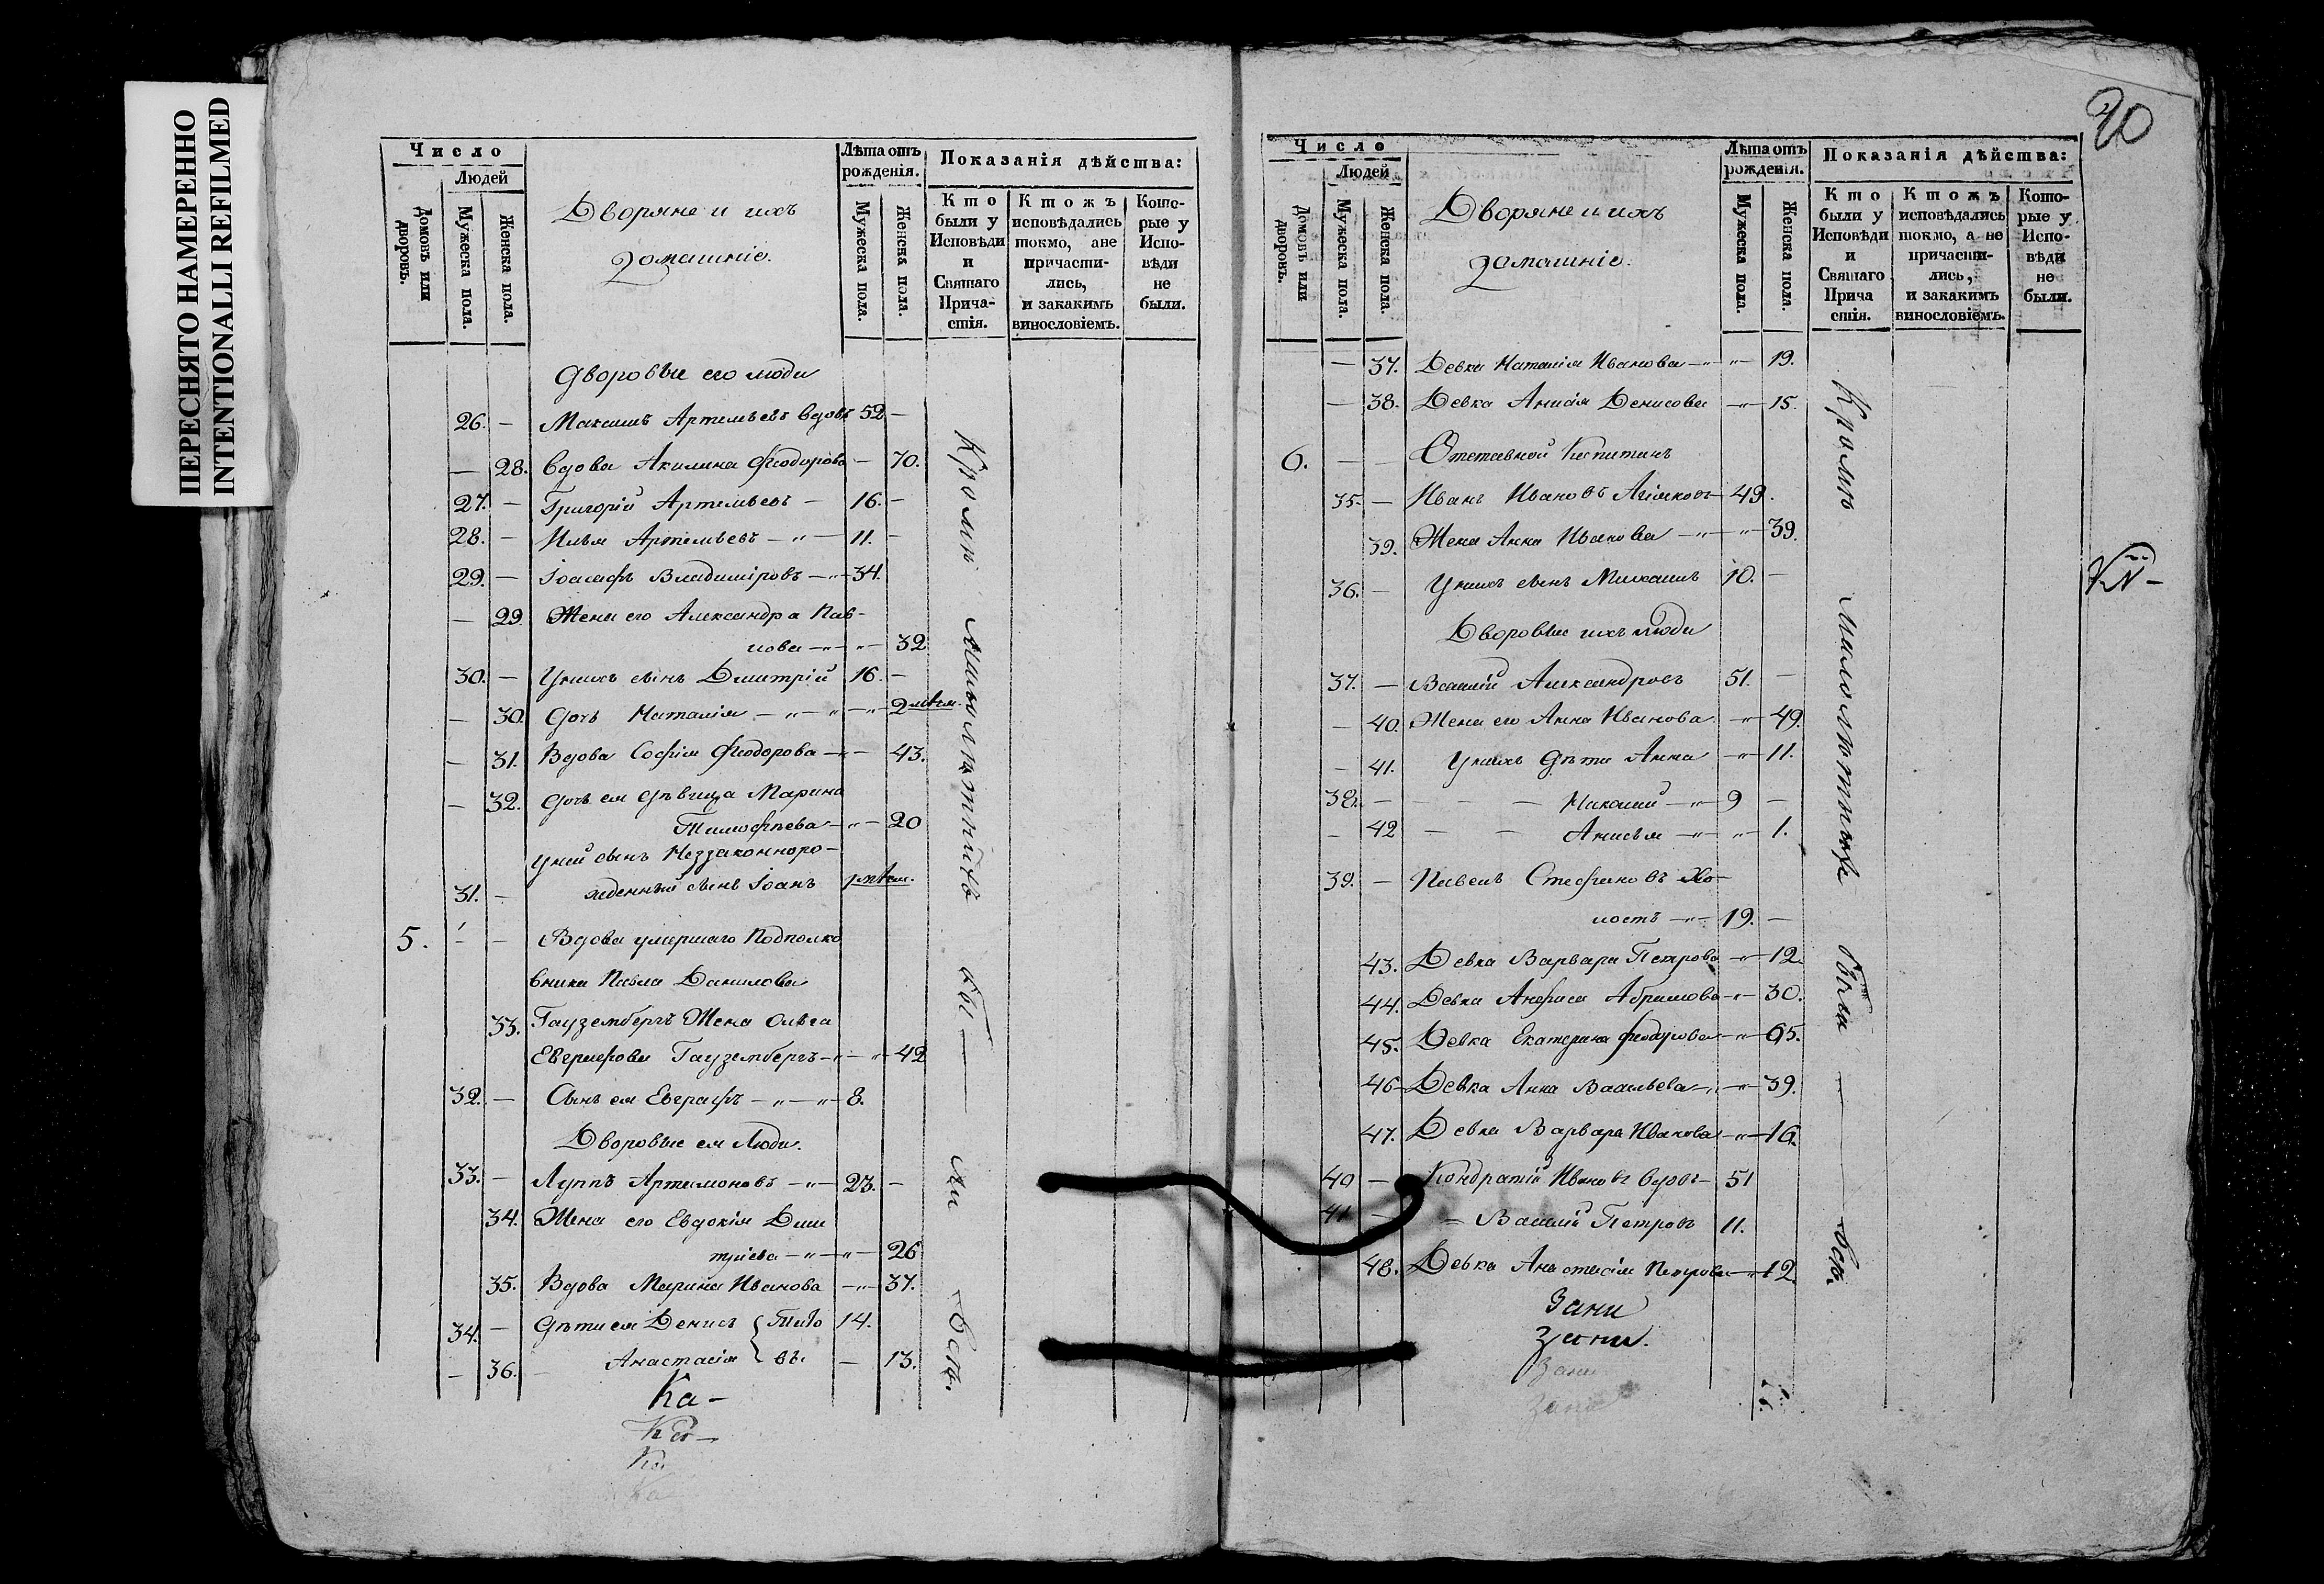 ПЕРЕСНЯТО НАМЕРЕННО
INTENTIONALLI REFILMED
Число
Людей
Домовъ или дворовъ.
Мужеска пола.
Женска пола.
Дворяне и ихъ
домашніе.
Лѣта отъ рожденія.
Мужеска пола.
Женска пола.
Показанія дѣйства:
Кто были у Исповѣди и Святаго Прича-стія.
Ктожъ исповѣдались токмо, ане причасти-лись, и закакимъ винословіемъ.
Кото-рые у Испо-вѣди не были.
Дворовые его люди
26. — Максимъ Артемьевъ вдовъ 52 —
— 28. Вдова Акилина Ѳеодорова — 70.
27. — Григорій Артемьевъ — 16. —
28. — Илья Артемьевъ — „ — 11. —
29. — Іоасафъ Владиміровъ — „ — 34.
— 29. Жена его Александра Пав-
лова — „ — „ — 32
30. — У нихъ сынъ Димитрій 16. —
— 30. Дочь Наталія — „ — „ — „ — 2
— 31. Вдова Софія Ѳеодорова — „ — 43.
— 32. Дочь ея дѣвица Марина
Тимофѣева — „ — 20
У ней сынъ Неззаконноро-
31. — жденный сынъ Іоанъ 1
5. — — Вдова умершаго Подполко
вника Павла Данилова
33. Гаузембергъ Жена Ольга
Евграфова Гаузембергъ — „ — „ 42
32. — Сынъ ея Евграфъ — „ — „ — 8.
Дворовые ея Люди.
33. — Луппъ Артамоновъ — „ — 23. —
34. Жена его Евдокія Дими
тріева — „ — „ — 26
35. Вдова Марина Иванова — „ — 37.
34. — Дѣти ея Денисъ { Тито 14.
— 36. Анастасія { въ. — 13.
Ка-
Ка-
Ка
Ка
Кромѣ малолѣтнихъ бы — ли всѣ.
20
Число
Людей
Домовъ или дворовъ.
Мужеска пола.
Женска пола.
Дворяне и ихъ
домашніе.
Лѣта отъ рожденія.
Мужеска пола.
Женска пола.
Показанія дѣйства:
Кто были у Исповѣди и Святаго Прича стія.
Ктожъ исповѣдались токмо, а не причасти-лись, и закакимъ винословіемъ.
Кото-рые у Испо-вѣди не были.
— 37. Девка Наталія Иванова — „ „ — 19.
— 38. Девка Анисія Денисова — „ — 15.
6. — — Отставной Капитанъ
35. — Иванъ Ивановъ 49.
39. Жена Анна Иванова — „ — „ — 39.
36. — У нихъ сынъ Михаилъ 10. —
Дворовые ихъ люди
37. — Василій Александровъ 51. —
— 40. Жена его Анна Иванова — „ — 49.
— 41. У нихъ дѣти Анна — „ — 11.
38. — — — Николай — „ 9 —
— 42 — — Анисья — „ — „ — 1.
39. — Павелъ Стефановъ Хо-
лостъ — „ — 19. —
43. Девка Варвара Петрова — „ — 12.
44. Девка Анфиса Абрамова — „ — 30.
45. Девка Екатерина Ѳеодорова — „ — 65.
46 — Девка Анна Васильева — „ — „ — 39.
47. Девка Варвара Иванова — „ — 16.
40 — Кондратій Ивановъ вдовъ — 51
41 — — Василій Петровъ 11.
48. Девка Анастасія Петрова — „ 12.
Зани
Зани.
Зани
Зани
Кромѣ малолѣтныхъ были — — всѣ.